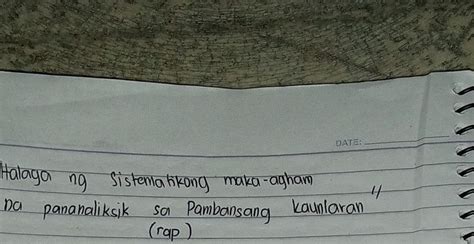 DATE:
Halaga ng Sistematikong maka-agham
na pananaliksik sa Pambansang kaunlaran"
(rap)